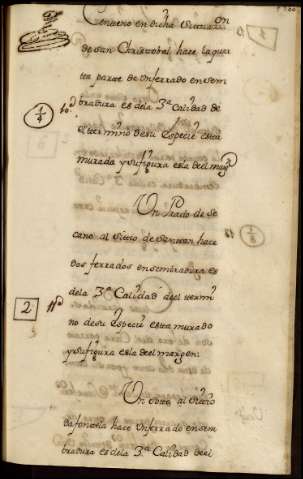 Centeno en dicha Situaz.on
de San Christobal hace la quar
ta parte de Un ferrado en sem
bradura es de la 3.a Calidad de
el termino de su Especie esta
murada y su figura es la del marg.n
1/4
10.a
Un Prado de se
cano al Sittio de hace
dos ferrados en sembradura es
de la 3.a Calidad del termi
no de su Especie esta murado
y su figura es la del margen
2
11.a
Un al Sittio
da fonte la hace Un ferrado en sem
bradura es de la 3.a Calidad del